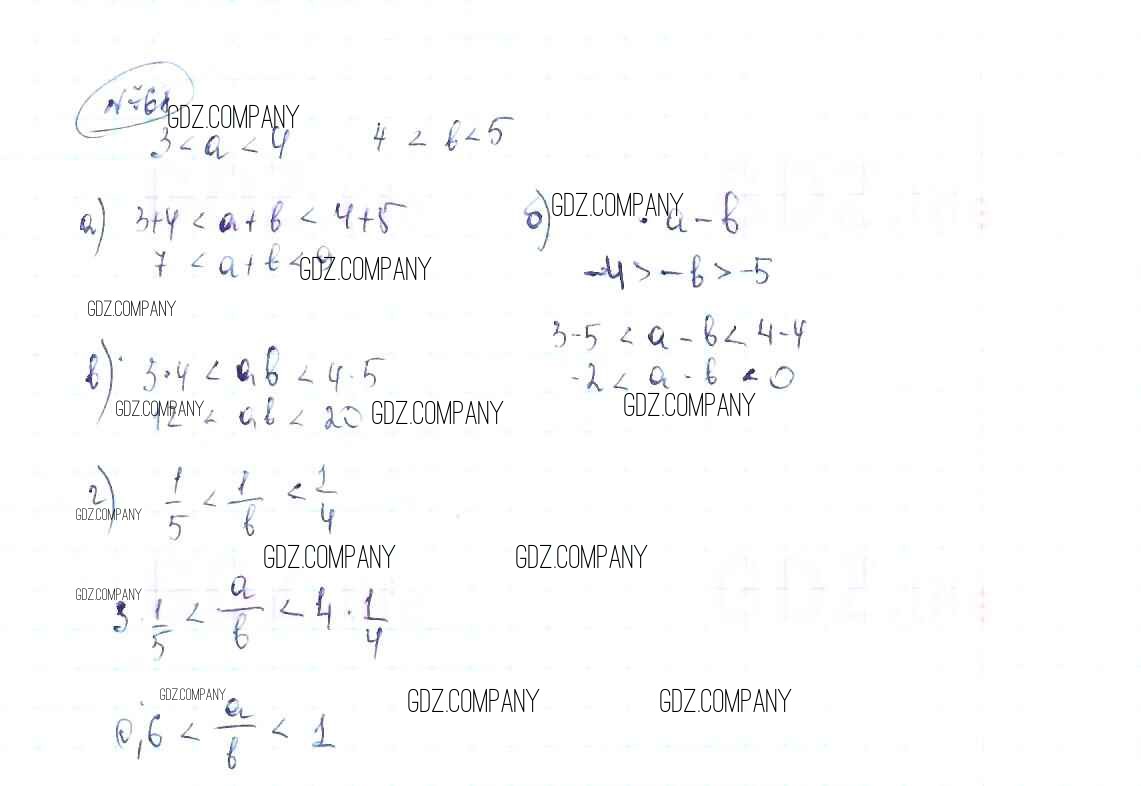 № 61
GDZ.COMPANY
3 < a < 4    4 < b < 5
а) 3+4 < a+b < 4+5
7 < a+b < 9
GDZ.COMPANY
GDZ.COMPANY
б) a − b
GDZ.COMPANY
−4 > −b > −5
3−5 < a − b < 4−4
−2 < a − b < 0
GDZ.COMPANY
в) 3·4 < ab < 4·5
12 < ab < 20
GDZ.COMPANY GDZ.COMPANY
г) 1/5 < 1/b < 1/4
GDZ.COMPANY
GDZ.COMPANY GDZ.COMPANY
GDZ.COMPANY
3 · 1/5 < a/b < 4 · 1/4
GDZ.COMPANY GDZ.COMPANY GDZ.COMPANY
0,6 < a/b < 1